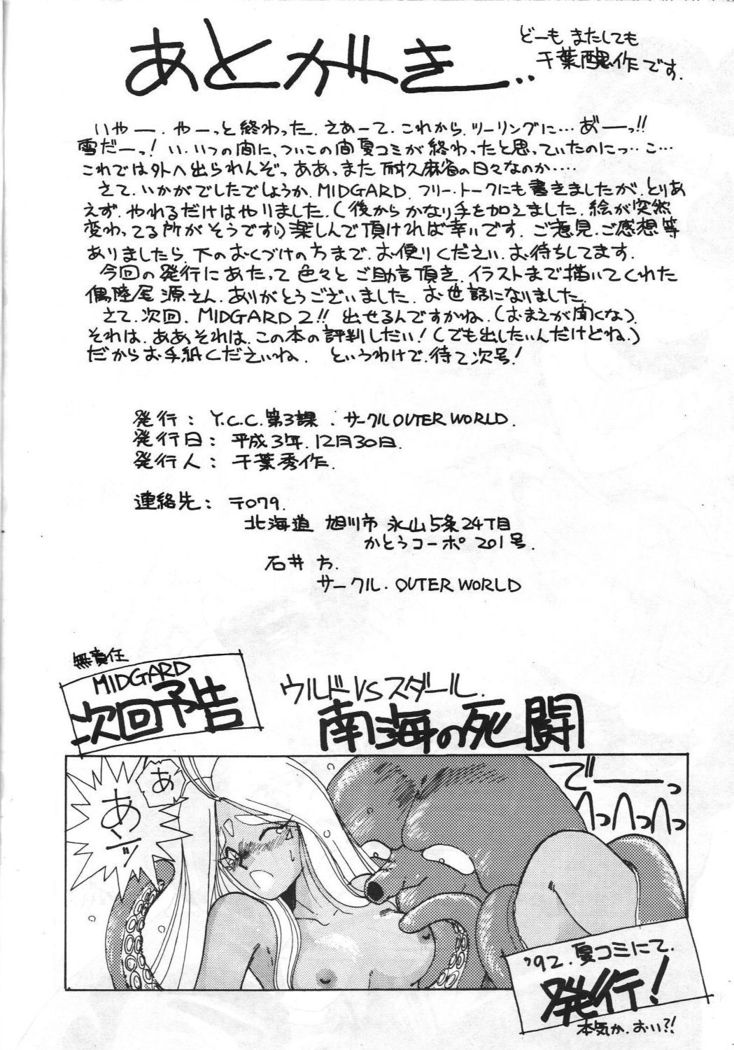 あとがき..
どーも またしても
千葉醜作です.
いやー. やーっと終わった. さあーて. これから. ツーリングに… あ゛ーっ!!
雪だーっ! い. いつの間に, ついこの間夏コミが終わったと思っていたのにっ… こ…
これでは外へ出られんぞっ. ああ、また 耐久麻雀の日々なのか‥‥
さて. いかがでしたでしょうか. MIDGARD. フリー・トークにも書きましたが. とりあ
えず. やれるだけはやりました. (後からかなり手を加えました. 絵が突然
変わってる所がそうです) 楽しんで頂ければ幸いです. ご意見. ご感想等
ありましたら. 下のおくづけの方まで. お便りください. お待ちしてます.
今回の発行にあたって 色々と ご助言頂き. イラストまで描いてくれた
偶陸尾 源さん. ありがとうございました. お世話になりました.
さて. 次回. MIDGARD 2!! 出せるんですかね. (おまえが聞くな)
それは. ああそれは. この本の評判しだい! (でも出したいんだけどね.)
だからお手紙くださいね. というわけで. 待て次号!
発行: Y.C.C. 第3課. サークル OUTER WORLD.
発行日: 平成3年. 12月30日.
発行人: 千葉秀作.
連絡先: 〒079.
北海道 旭川市 永山5条24丁目
かとうコーポ 201号.
石井 方.
サークル. OUTER WORLD
無責任
MIDGARD
次回予告
ウルドVSスダール.
南海の死闘
あ
あンッ
でーーっ
へっへっへっ
'92. 夏コミにて.
発行!
本気か. おい?!